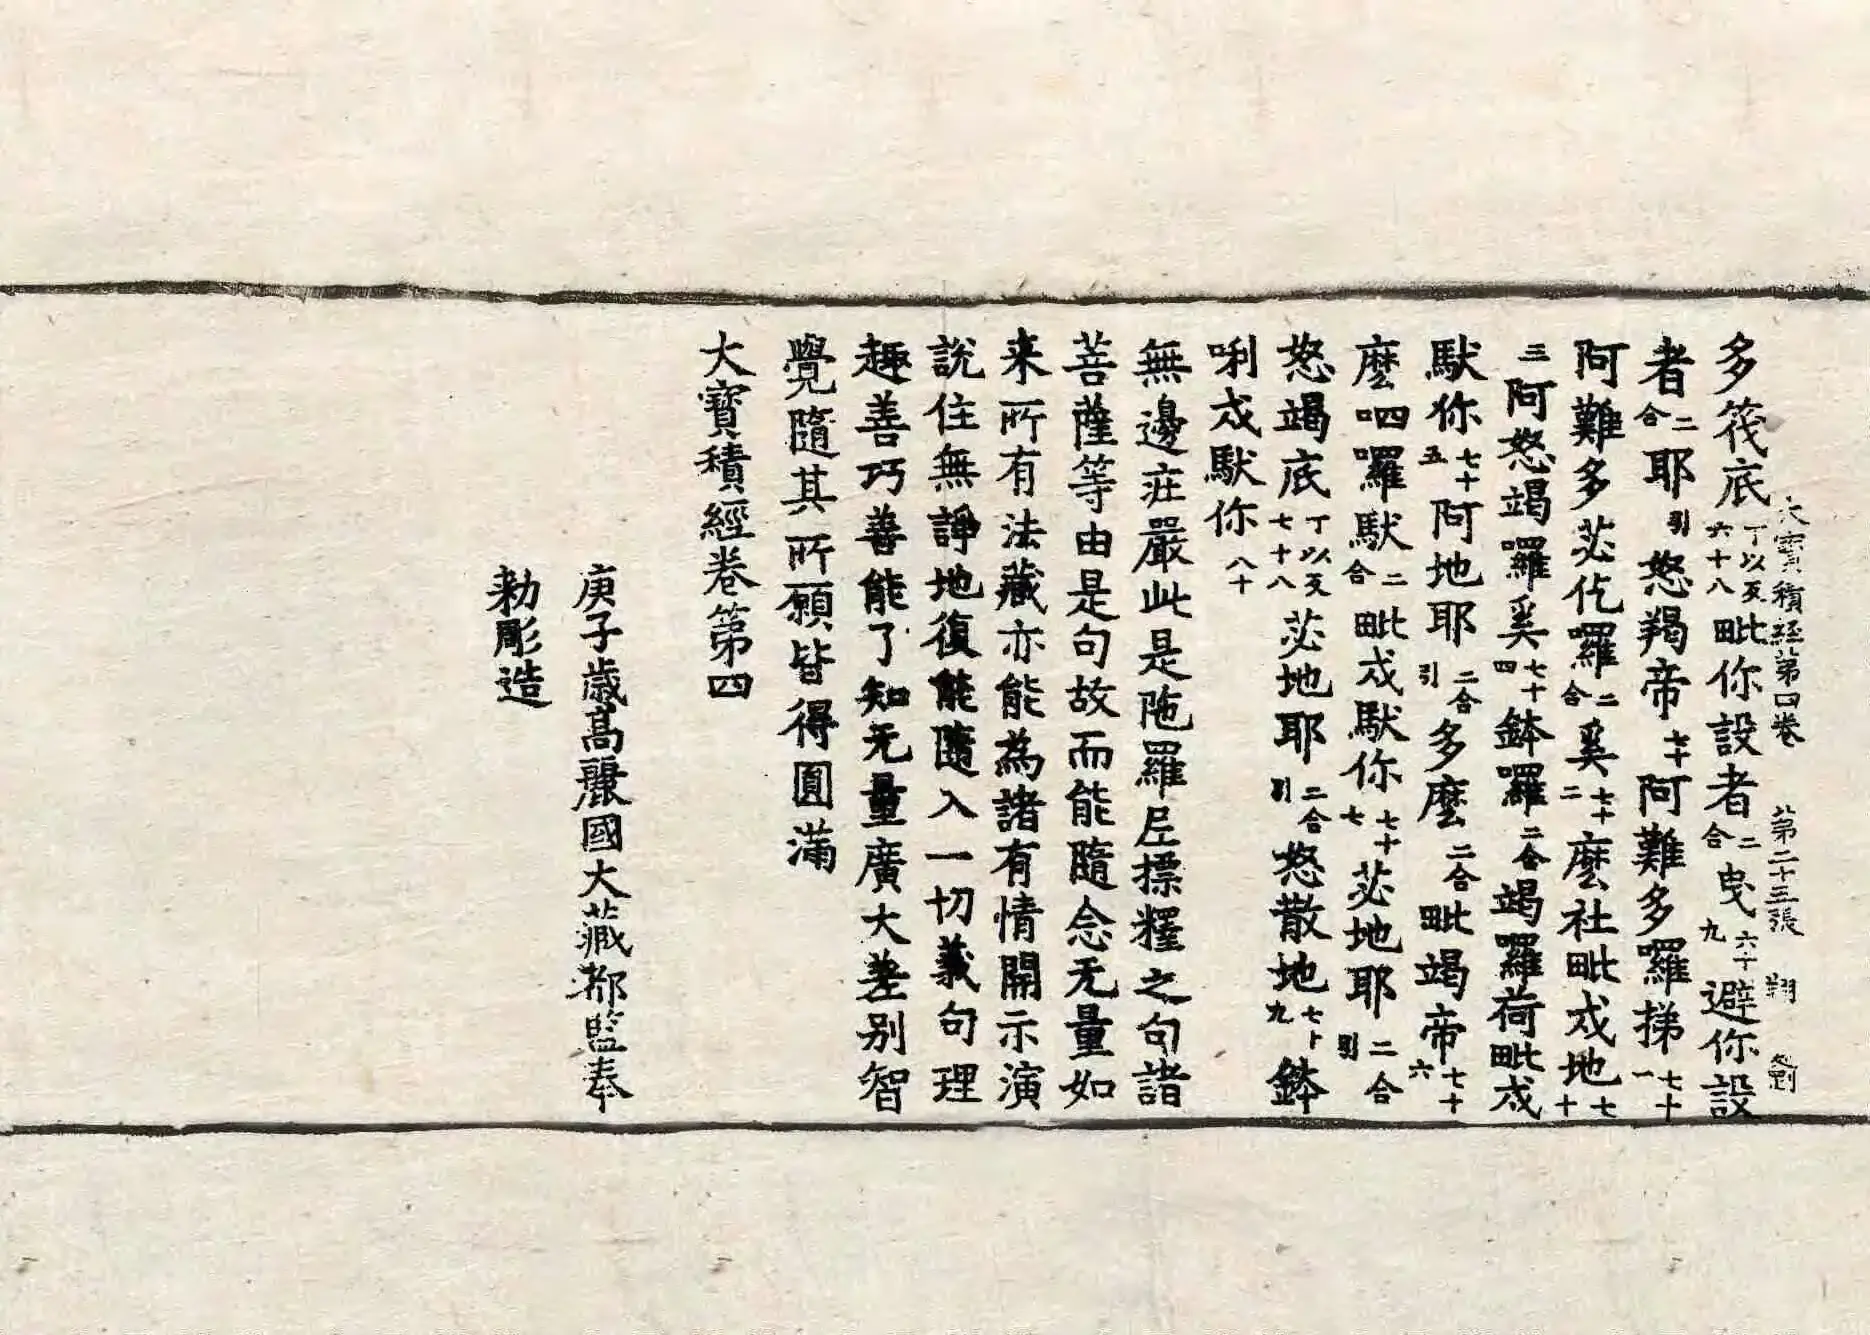 大寶積經第四卷 第二十三張 翔
多筏底丁以反六十八毗你設者二合曳六十九避你設
者二合耶引怒羯帝七十阿難多囉挮七十一
阿難多苾仡羅二合奚七十二麼社毗戍地七十
三阿怒竭囉奚七十四鉢囉二合竭囉荷毗戍
馱你七十五阿地耶二合引多麼二合毗竭帝七十六
麼呬囉馱二合毗戍馱你七十七苾地耶二合引
怒竭底丁以反七十八苾地耶二合引怒散地七十九鉢
唎戍馱你八十
無邊莊嚴此是陁羅尼摽釋之句諸
菩薩等由是句故而能隨念无量如
来所有法藏亦能為諸有情開示演
說住無諍地復能隨入一切義句理
趣善巧善能了知无量廣大差别智
覺隨其所願皆得圓滿
大寶積經卷第四
庚子歲高麗國大藏都監奉
勅彫造